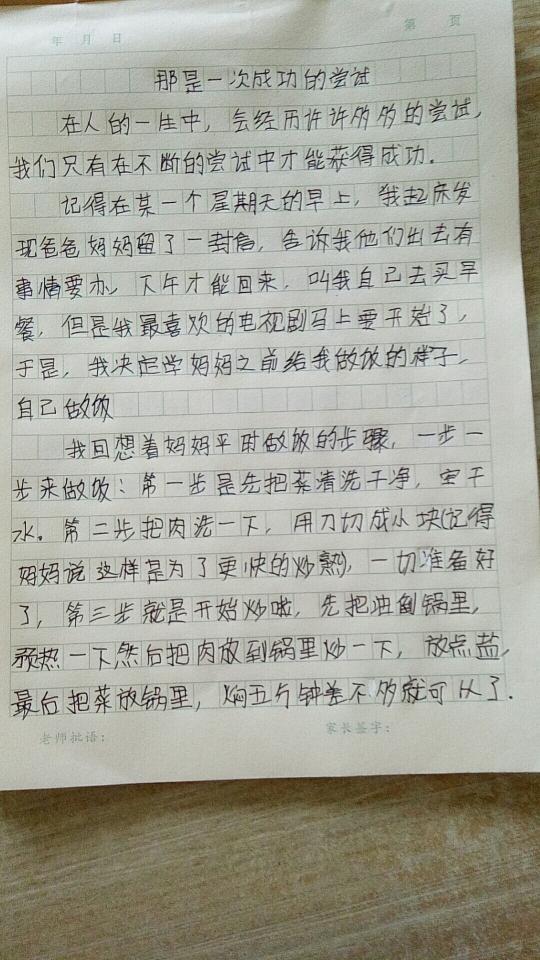 年 月 日
第 页
那是一次成功的尝试
在人的一生中，会经历许许多多的尝试，
我们只有在不断的尝试中才能获得成功．
记得在某一个星期天的早上，我起床发
现爸爸妈妈留了一封信，告诉我他们出去有
事情要办，下午才能回来，叫我自己去买早
餐，但是我最喜欢的电视剧马上要开始了，
于是，我决定学妈妈之前给我做饭的样子，
自己做饭
我回想着妈妈平时做饭的步骤，一步一
步来做饭：第一步是先把菜清洗干净，空干
水．第二步把肉洗一下，用刀切成小块(记得
妈妈说这样是为了更快的炒熟)，一切准备好
了，第三步就是开始炒啦，先把油倒锅里，
预热一下，然后把肉放到锅里炒一下，放点盐，
最后把菜放锅里，焖五分钟差不多就可以了．
老师批语：
家长签字：